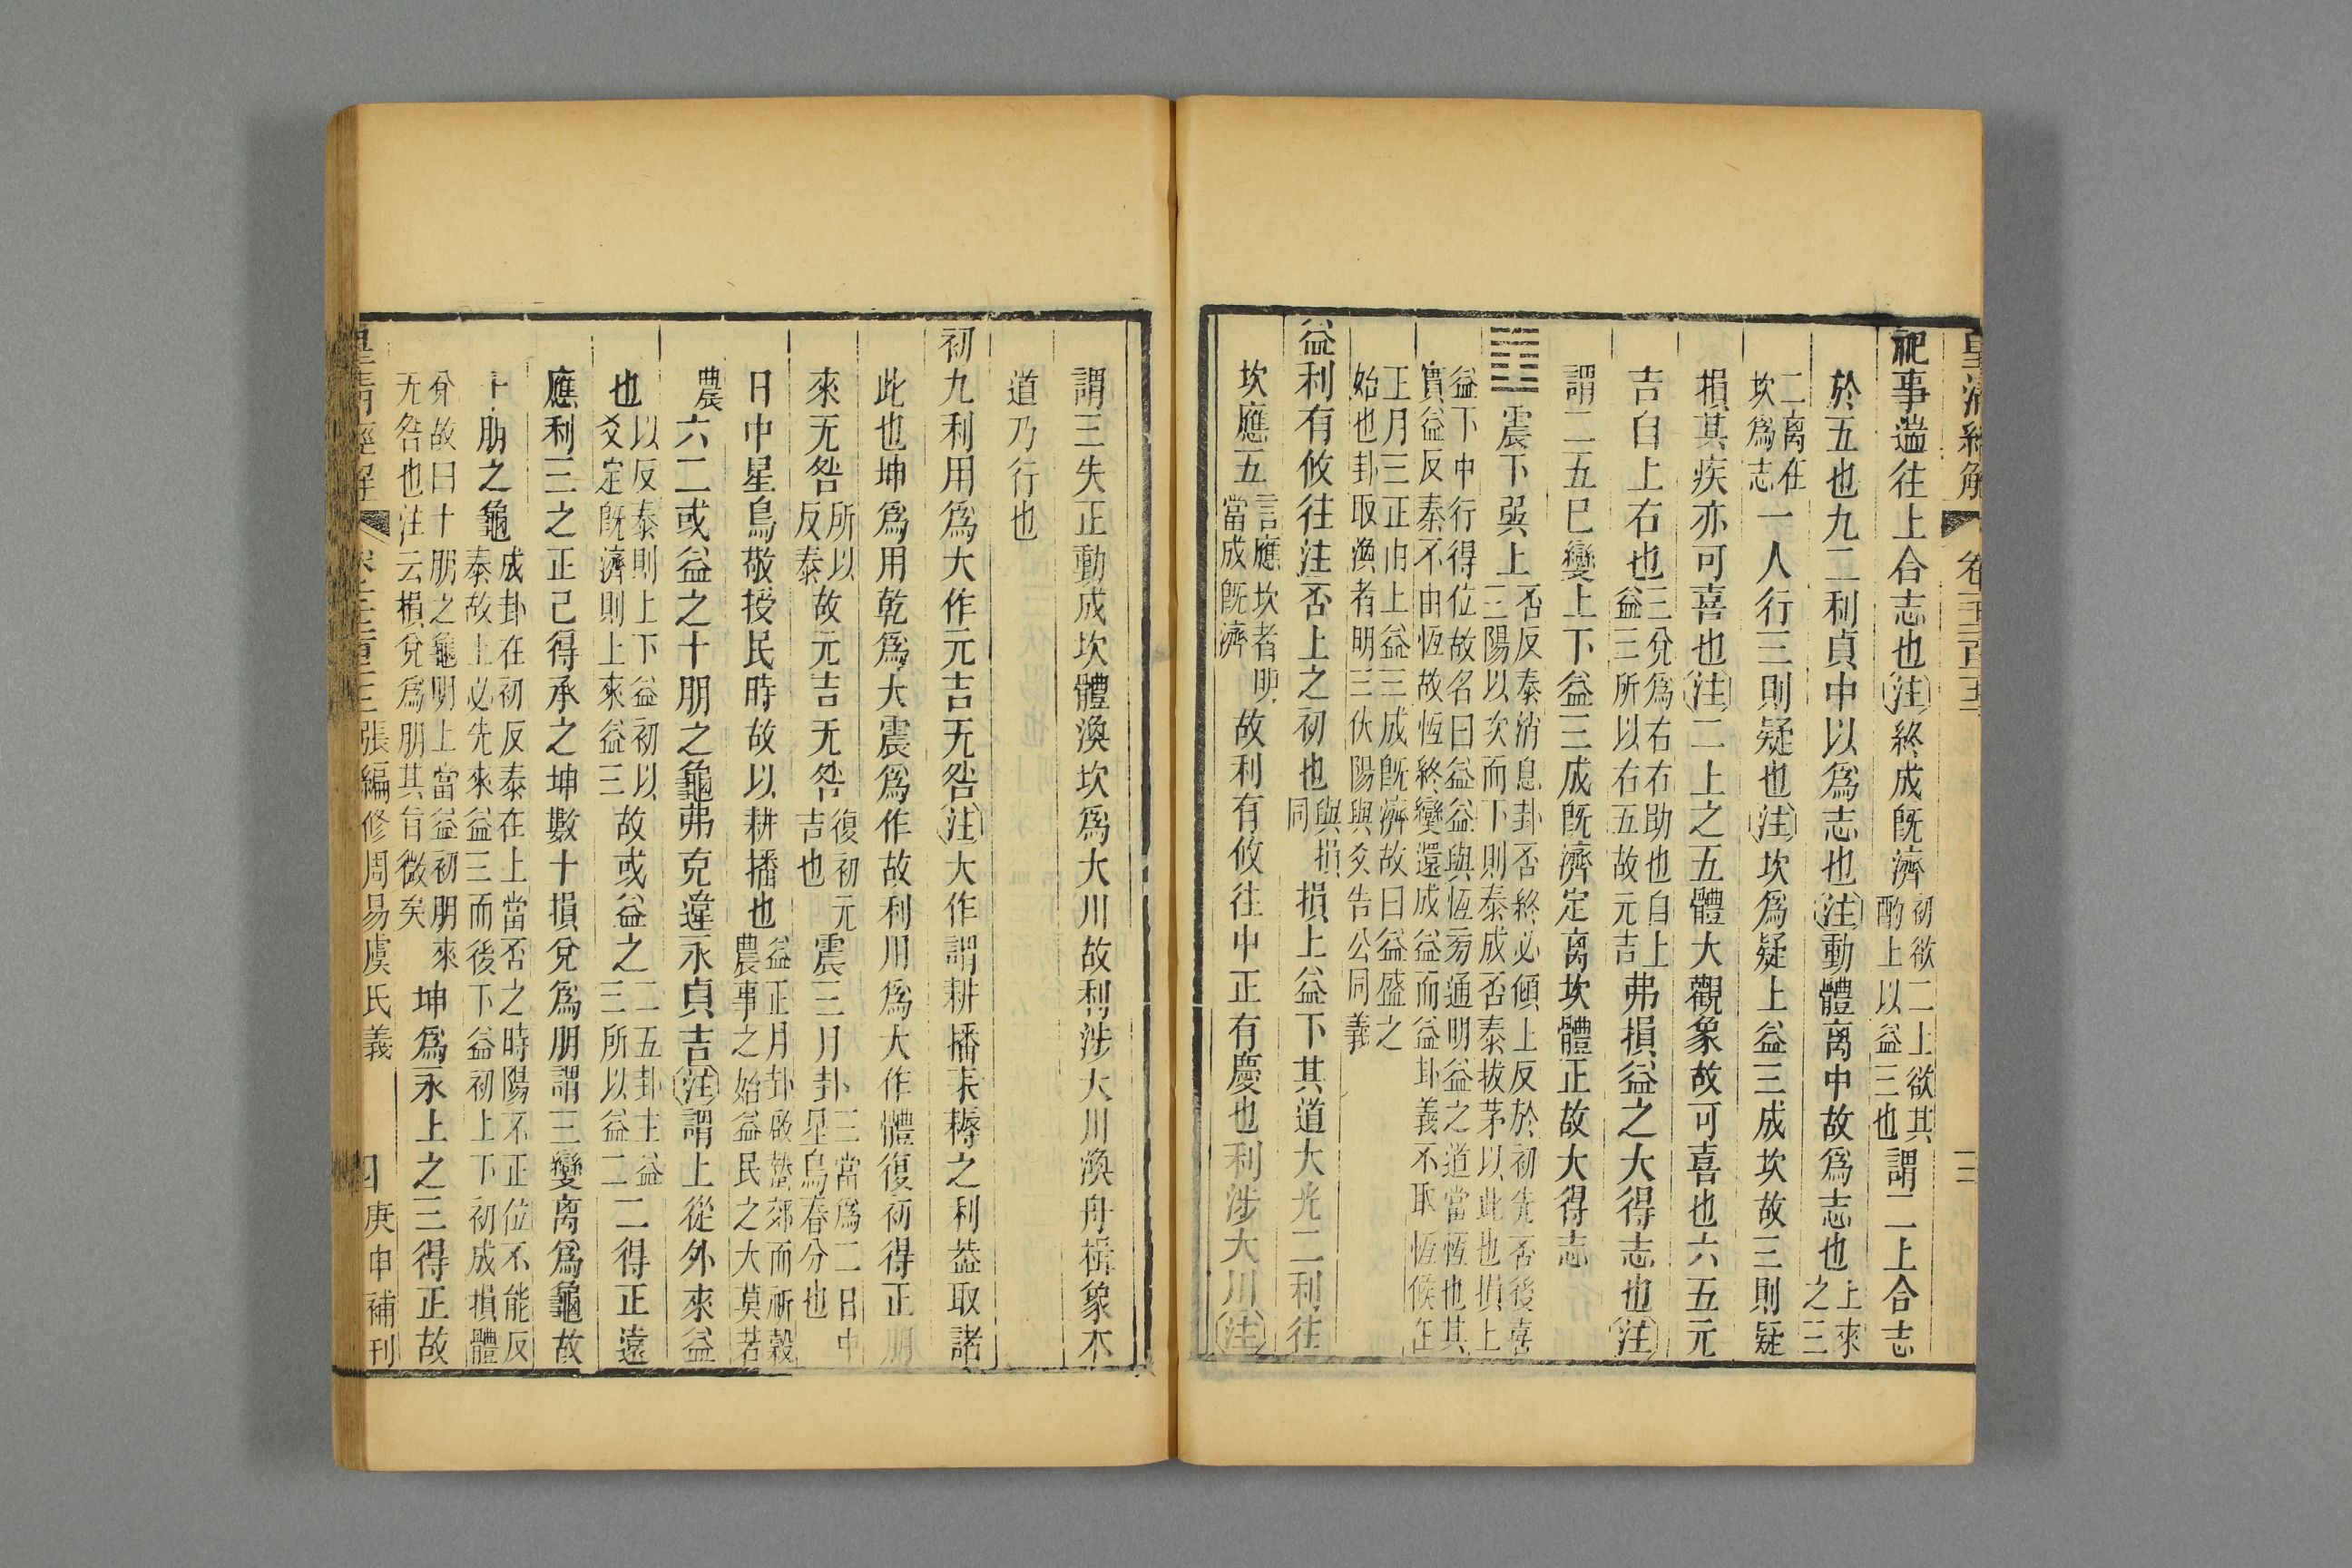 皇清經解 卷
祀事遄往上合志也注終成既濟初欲二上欲其酌上以益三也謂二上合志
於五也九二利貞中以為志也注動體离中故為志也上來之三
二离在坎為志一人行三則疑也注坎為疑上益三成坎故三則疑
損其疾亦可喜也注二上之五體大觀象故可喜也六五元
吉自上右也三兌為右右助也自上益三所以右五故元吉弗損益之大得志也注
謂二五已變上下益三成既濟定离坎體正故大得志
䷩震下巽上否反泰消息卦否終必傾上反於初先否後喜三陽以次而下則泰成否泰拔茅以此也損上
益下中行得位故名曰益益與恆旁通明益之道當恆也其實益反泰不由恆故恆終變還成益而益卦義不取恆候在
正月三正由上益三成既濟故曰益盛之始也卦取渙者明三伏陽與爻告公同義
益利有攸往注否上之初也與損同損上益下其道大光二利往
坎應五言應坎者明當成既濟故利有攸往中正有慶也利涉大川注
謂三失正動成坎體渙坎為大川故利涉大川渙舟楫象木
道乃行也
初九利用為大作元吉无咎注大作謂耕播耒耨之利蓋取諸
此也坤為用乾為大震為作故利用為大作體復初得正朋
來无咎所以反泰故元吉无咎復初元吉也震三月卦三當為二日中星鳥春分也
日中星鳥敬授民時故以耕播也益正月卦啟蟄郊而祈穀農事之始益民之大莫若
農六二或益之十朋之龜弗克違永貞吉注謂上從外來益
也以反泰則上下益初以爻定既濟則上來益三故或益之二五卦主益三所以益二二得正遠
應利三之正己得承之坤數十損兌為朋謂三變离為龜故
十朋之龜成卦在初反泰在上當否之時陽不正位不能反泰故上必先來益三而後下益初上下初成損體
兌故曰十朋之龜明上當益初朋來无咎也注云損兌為朋其旨微矣坤為永上之三得正故
皇清經解 張編修周易虞氏義 四 庚申補刊